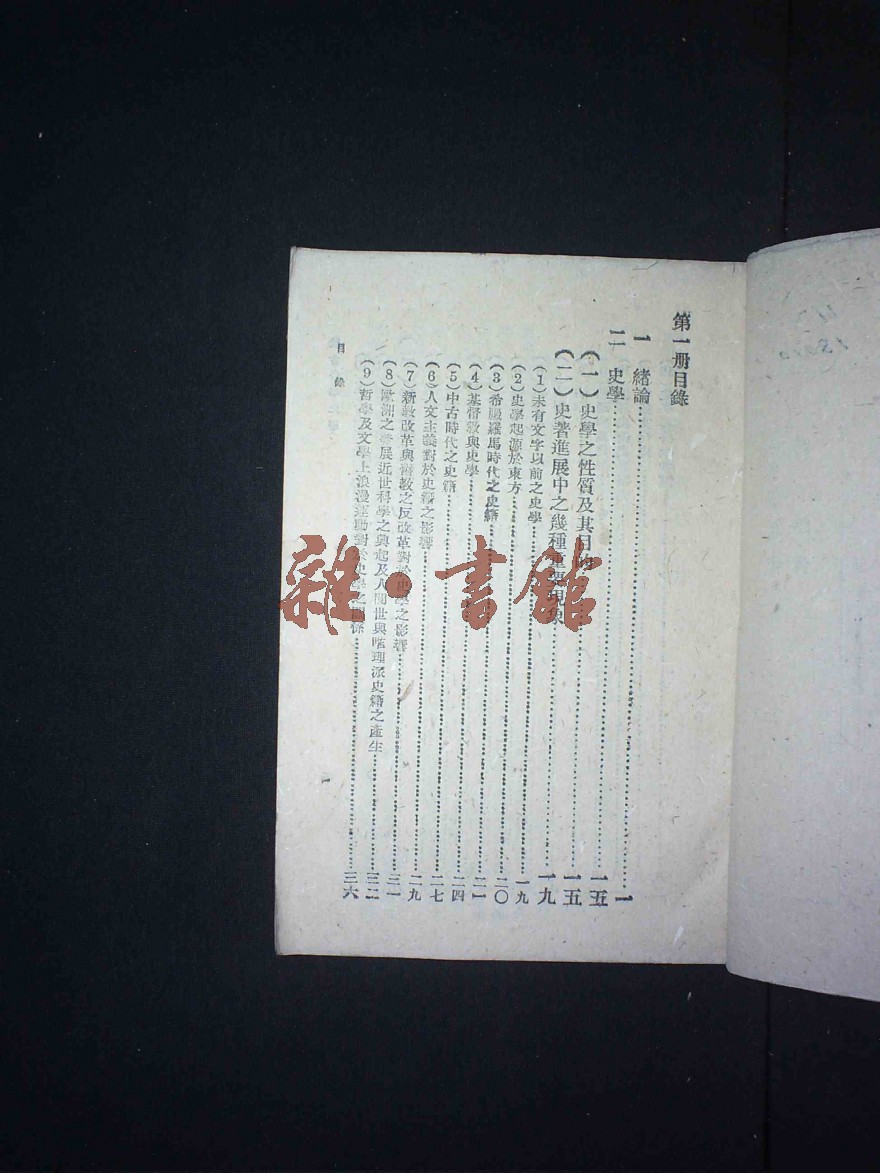 第一册目錄
一　緒論……一
二　史學……一五
（一）史學之性質及其目的……一五
（二）史著進展中之幾種重要現象……一九
（1）未有文字以前之史學……一九
（2）史學起源於東方……二〇
（3）希臘羅馬時代之史籍……二一
（4）基督教與史學……二四
（5）中古時代之史籍……二七
（6）人文主義對於史籍之影響……二九
（7）新教改革與舊教之反改革對於史學之影響……三一
（8）歐洲之發展近世科學之興起及人間世與唯理派史籍之產生……三二
（9）哲學及文學上浪漫運動對於史學之關係……三六
目錄
一
雜·書館